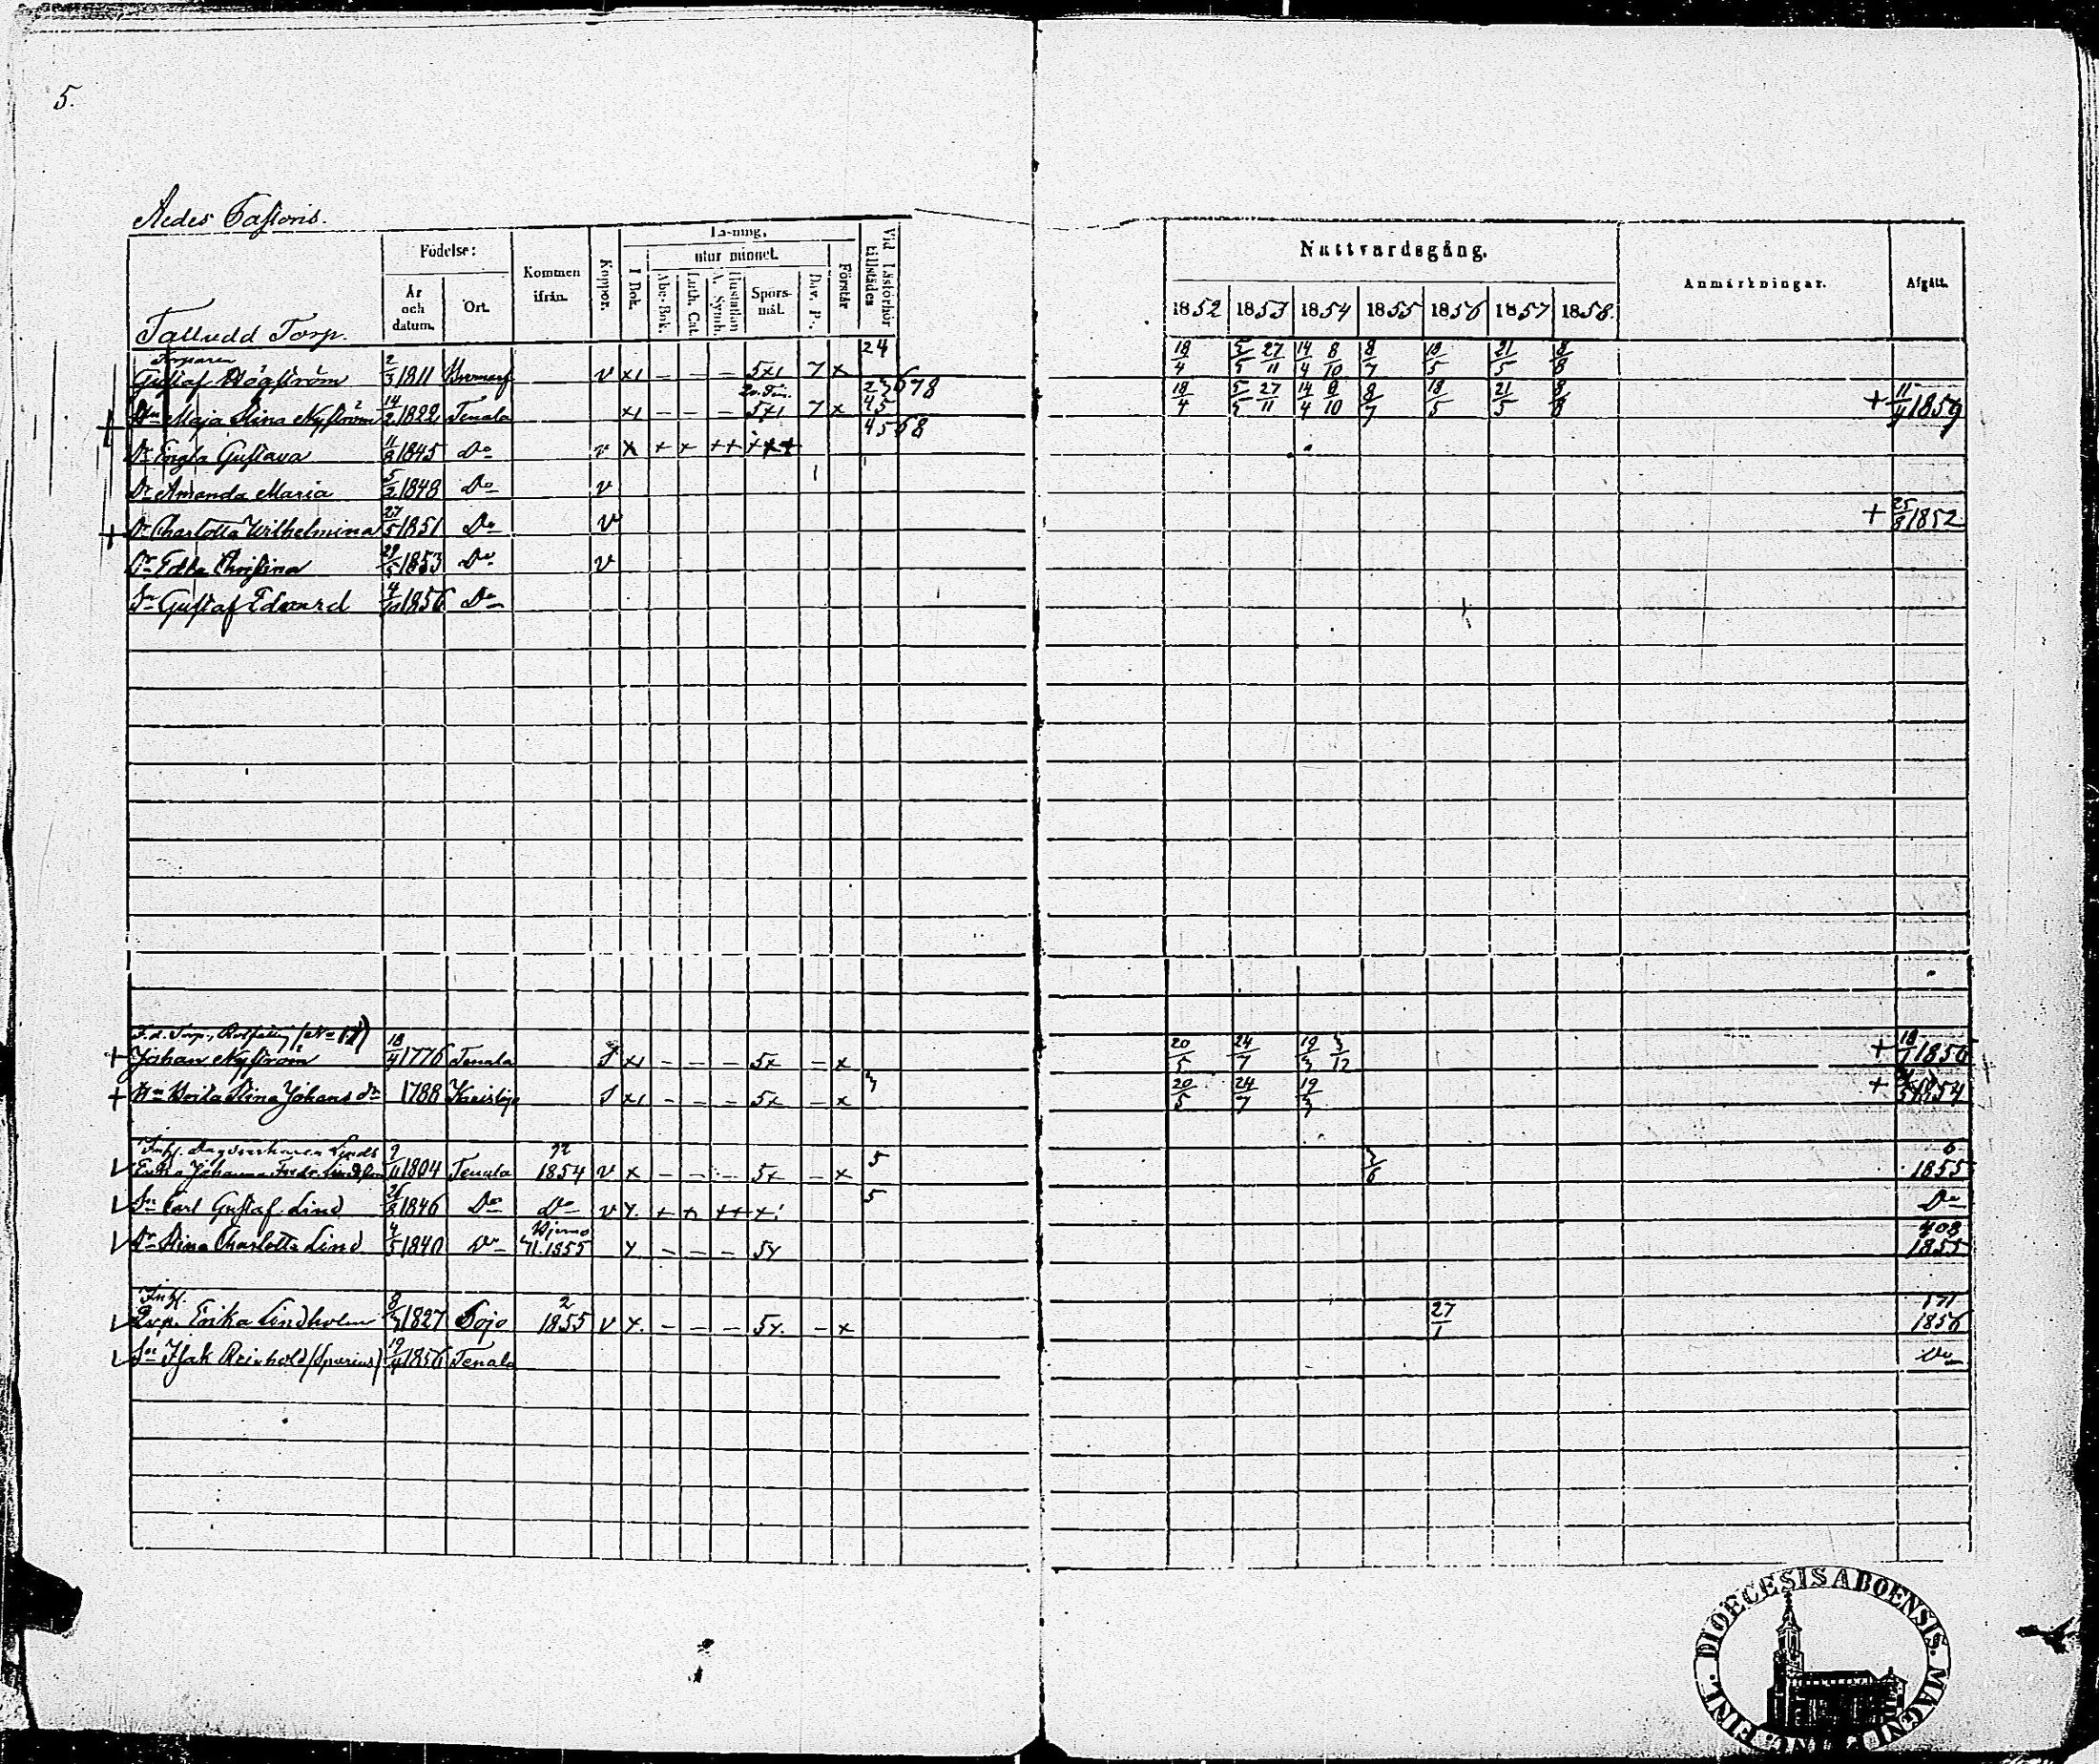 5.
Aedes Pastoris.
Födelse:
Läsning,
utur minnet.
Nattvardsgång.
Anmärkningar.
Afgått.
År och datum.
Ort.
Kommen ifrån.
Koppor.
I Bok.
Abc-Bok.
Luth. Cat.
Hustaflan A. Symb.
Spörsmål.
Dav. P.
Förstår
Vid Läsförhör tillstädes
1852 1853 1854 1855 1856 1857 1858.
Talludd Torp.
Torparen 24
Gustaf Högström 2/3 1811 Bromarf v x1 – – – 5x1 7 x 18/4 5/5 27/11 14/4 8/10 8/7 18/5 21/5 8/8
Hu Maja Stina Nyström 14/2 1822 Tenala x1 – – – 5x1 7 x 45 18/4 5/5 27/11 14/4 8/10 8/7 18/5 21/5 8/8 + 11/4 1859
Dr Engla Gustava 11/8 1845 Do v x + + ++ +++ 4568
Dr Amanda Maria 5/2 1848 Do v
+ Dr Charlotta Wilhelmina 27/5 1851 Do v + 25/8 1852
Dr Edla Christina 29/5 1853 Do v
Sn Gustaf Edvard 4/10 1856 Do
F.d. Torp.
+ Johan Nyström 18/4 1776 Tenala x1 – – – 5x – x 20/5 24/7 19/3 3/12 + 18/1 1856
+ Stina Johans dr 1788 x1 – – – 5x – x 3 20/5 24/7 19/3 + 1854
Inh. Linds 92 6
Johanna 9/11 1804 Tenala 1854 v x – – – 5x – x 5 3/6 1855
Sn Carl Gustaf Lind 21/8 1846 Do Do v x + + ++ +: 5 Do
Dr Stina Charlotta Lind 4/5 1840 Do 1855 x – – – 5x 408 1855
Inh. 2 171
Qvp. Erika Lindholm 8/3 1827 Pojo 1855 v x. – – – 5x. – x 27/1 1856
Sn Isak Reinhold (Spurius) 19/4 1856 Tenala Do
DIOECESIS ABOENSIS. MAGNI